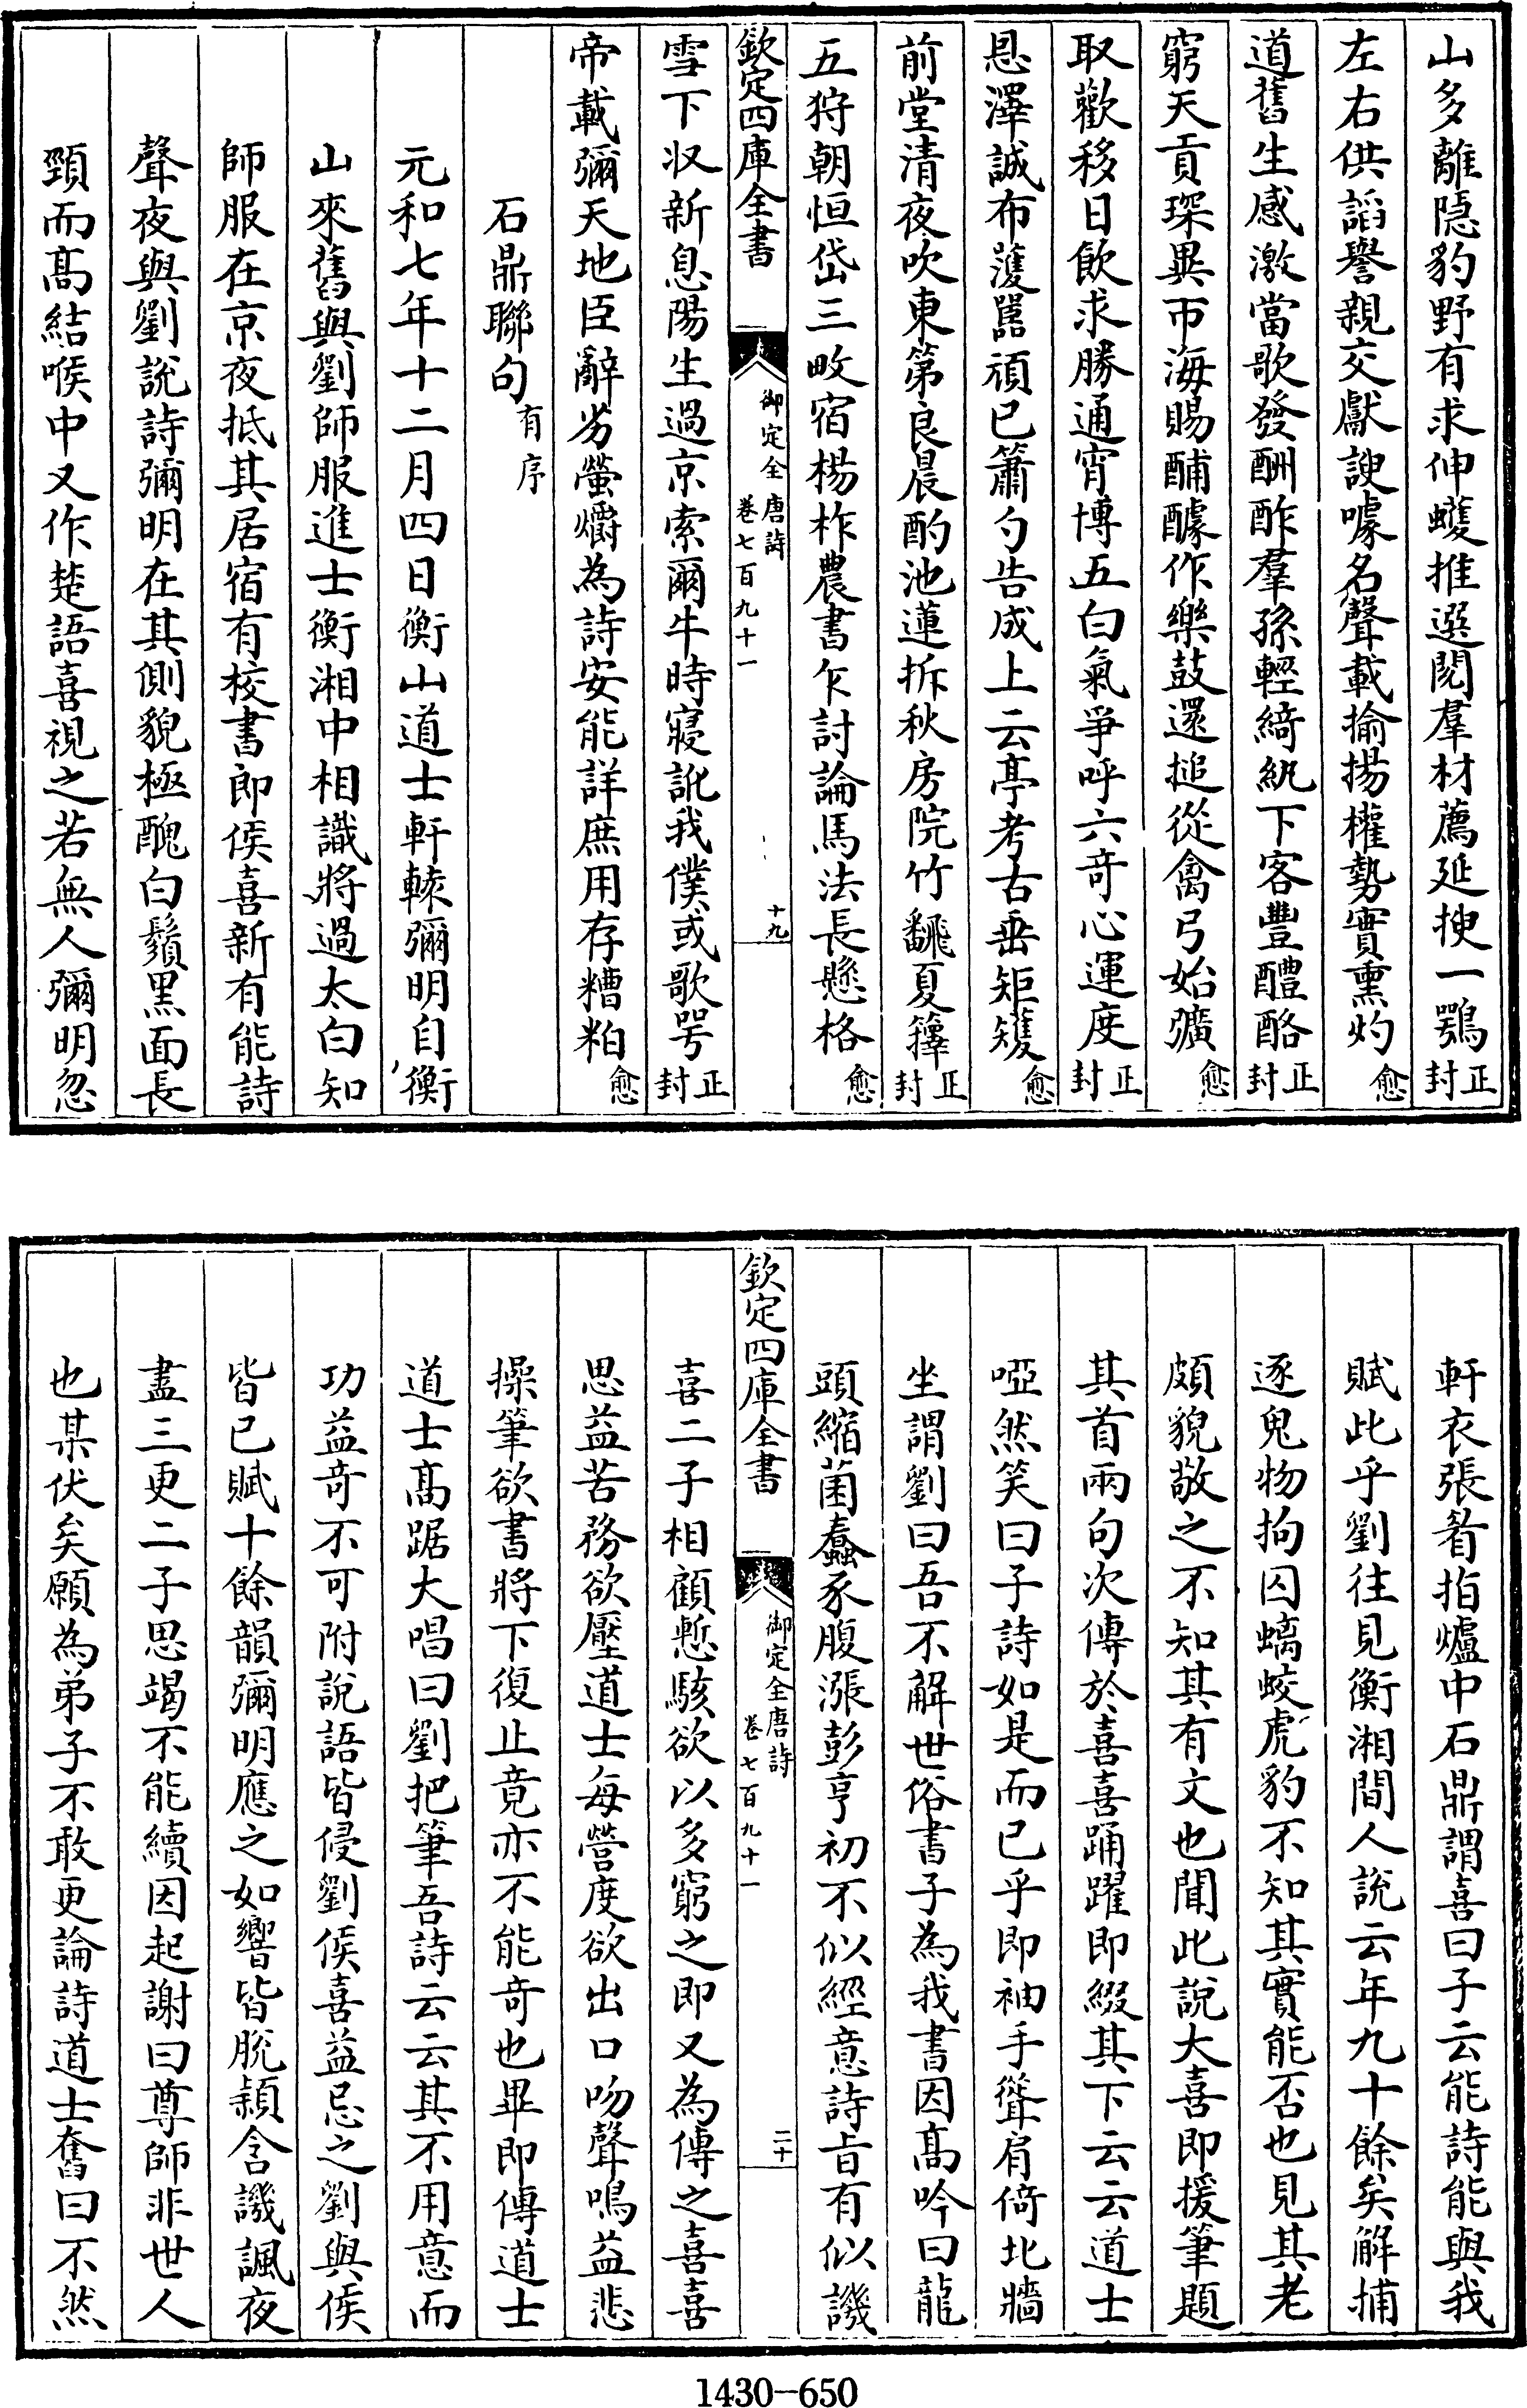 山多離隠豹野有求伸蠖推選閱羣材薦延搜一鶚正封
左右供諂譽親交獻諛噱名聲載揄揚權勢實熏灼愈
道舊生感激當歌發酬酢羣孫輕綺紈下客豐醴酪正封
窮天貢琛異帀海賜酺醵作樂鼓還搥從禽弓始彍愈
取歡移日飲求勝通宵博五白氣爭呼六竒心運度正封
恩澤誠布濩嚚頑已簫勺告成上云亭考古垂矩矱愈
前堂清夜吹東第良晨酌池蓮拆秋房院竹翻夏籜正封
五狩朝恒岱三畋宿楊柞農書乍討論馬法長懸格愈
欽定四庫全書 御定全唐詩 卷七百九十一 十九
雪下収新息陽生過京索爾牛時寢訛我僕或歌咢正封
帝載彌天地臣辭劣螢爝為詩安能詳庶用存糟粕愈
石鼎聯句有序
元和七年十二月四日衡山道士軒轅彌明自衡
山來舊與劉師服進士衡湘中相識將過太白知
師服在京夜抵其居宿有校書郎侯喜新有能詩
聲夜與劉說詩彌明在其側貌極醜白鬚黑面長
頸而髙結喉中又作楚語喜視之若無人彌明忽
軒衣張眉指爐中石鼎謂喜曰子云能詩能與我
賦此乎劉往見衡湘間人說云年九十餘矣解捕
逐鬼物拘囚螭蛟虎豹不知其實能否也見其老
頗貌敬之不知其有文也聞此說大喜即援筆題
其首兩句次傳於喜喜踊躍即綴其下云云道士
啞然笑曰子詩如是而已乎即袖手聳肩倚北牆
坐謂劉曰吾不解世俗書子為我書因髙吟曰龍
頭縮菌蠢豕腹漲彭亨初不似經意詩旨有似譏
欽定四庫全書 御定全唐詩 卷七百九十一 二十
喜二子相顧慙駭欲以多窮之即又為傳之喜喜
思益苦務欲壓道士每營度欲出口吻聲鳴益悲
操筆欲書將下復止竟亦不能竒也畢即傳道士
道士髙踞大唱曰劉把筆吾詩云云其不用意而
功益竒不可附說語皆侵劉侯喜益忌之劉與侯
皆已賦十餘韻彌明應之如響皆脫潁含譏諷夜
盡三更二子思竭不能續因起謝曰尊師非世人
也某伏矣願為弟子不敢更論詩道士奮曰不然
1430-650